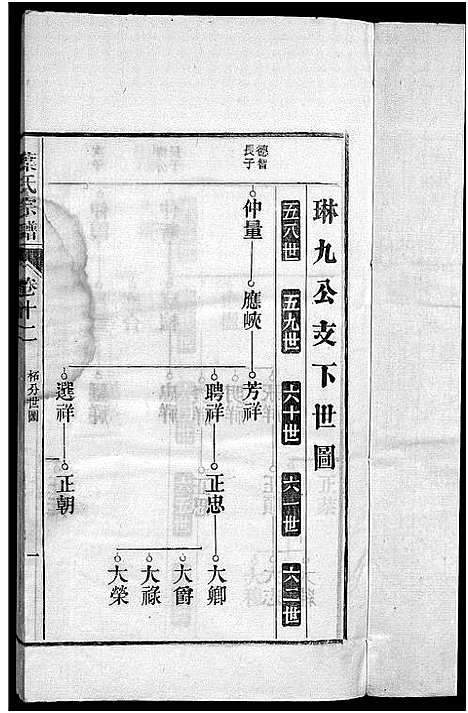 琳九公支下世圖
五八世
五九世
六十世
六一世
六二世
德智
長子
仲量
應峽
芳祥
聘祥
正忠
大卿
大爵
大祿
大榮
選祥
正朝
葉氏宗譜
卷十二
世圖
一